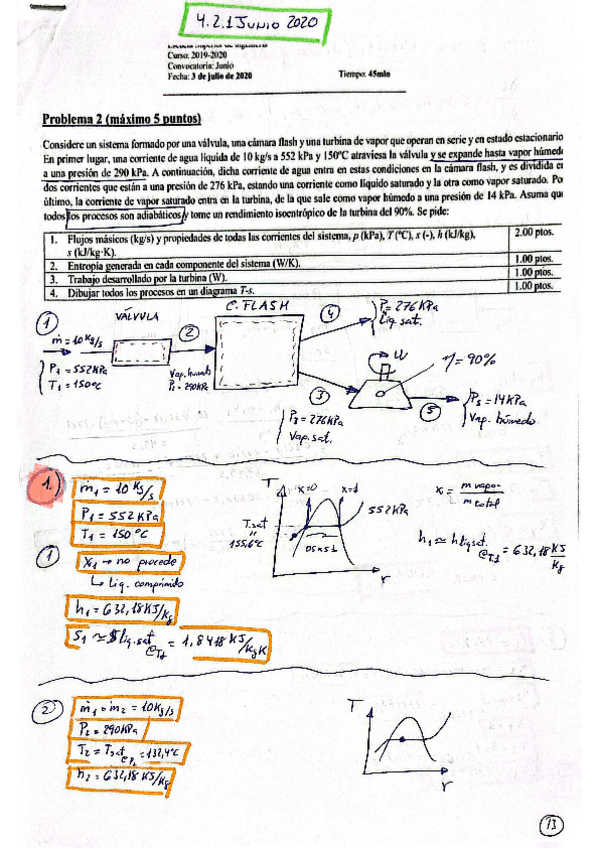 4.2.1 JUNIO 2020
Escuela Superior de Ingeniería
Curso: 2019-2020
Convocatoria: Junio
Fecha: 3 de julio de 2020 Tiempo: 45min
Problema 2 (máximo 5 puntos)
Considere un sistema formado por una válvula, una cámara flash y una turbina de vapor que operan en serie y en estado estacionario
En primer lugar, una corriente de agua líquida de 10 kg/s a 552 kPa y 150ºC atraviesa la válvula y se expande hasta vapor húmedo
a una presión de 290 kPa. A continuación, dicha corriente de agua entra en estas condiciones en la cámara flash, y es dividida en
dos corrientes que están a una presión de 276 kPa, estando una corriente como líquido saturado y la otra como vapor saturado. Po
último, la corriente de vapor saturado entra en la turbina, de la que sale como vapor húmedo a una presión de 14 kPa. Asuma que
todos los procesos son adiabáticos y tome un rendimiento isoentrópico de la turbina del 90%. Se pide:
1. Flujos másicos (kg/s) y propiedades de todas las corrientes del sistema, p (kPa), T (ºC), x (-), h (kJ/kg), 2.00 ptos.
s (kJ/kg·K).
2. Entropía generada en cada componente del sistema (W/K). 1.00 ptos.
3. Trabajo desarrollado por la turbina (W). 1.00 ptos.
4. Dibujar todos los procesos en un diagrama T-s. 1.00 ptos.
1 VÁLVULA 2 C. FLASH 4 P=276KPa
Liq. sat.
ṁ=10Kg/s
P1=552KPa
T1=150ºC
Vap. húmedo
P2=290KPa
3
P3=276KPa
Vap. sat.
Ẇ η=90%
5 P5=14KPa
Vap. húmedo
1.) ṁ1 = 10 Kg/s
P1 = 552 KPa
T1 = 150ºC
1 X1 → no procede
↳ Liq. comprimido
h1 = 632,18 KJ/Kg
S1 ≃ S liq. sat @T1 = 1,8418 KJ/KgK
T x=0 x=1 552KPa
T sat = 155,6ºC
0≤x≤1
r
x = m vapor / m total
h1 ≃ h liq sat @T1 = 632,18 KJ/Kg
2 ṁ1 = ṁ2 = 10Kg/s
P2 = 290KPa
T2 = T sat @P2 = 132,4ºC
h2 = 632,18 KJ/Kg
T
r
13